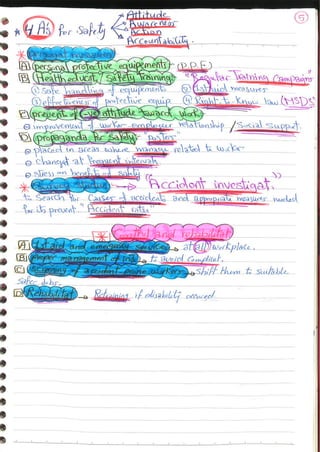 ⑤
* 4 A's for Safety
Attitude
Awareness
Action
Accountability.
* Personal measures
A personal protective equipements (P.P.E)
B Health educat. / Safety Training "Regular Training Campaigns"
① Safe handling of equipements ③ 1st aid measures
② effectiveness of protective equip. ④ Right to Know law (MSDS)
C prevent of (-ve) attitude toward work.
improvement of worker employer relationship / Social support.
D propaganda for safety "posters"
placed in areas where manage related to worker
changed at frequent intervals
stress on benefits of safety
* "Accident investigat."
to Search for Causes of accidents and appropriate measures needed
for its prevent "Accident rates"
* Control and rehabilitat
A 1st aid and emergency services → at all workplace.
B Proper management of inj. → to avoid Complicat.
C of accident prone workers → shift them to suitable
safer jobs.
D Rehabilitat → Retraining if disability occured